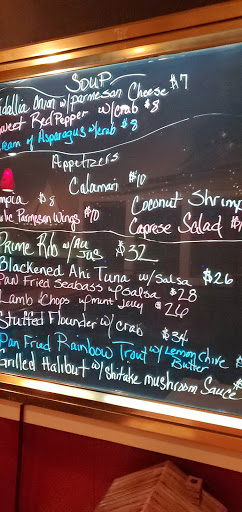 SOUP
idallia Onion w/parmesan Cheese $7
weet Red Pepper w/crab $8
ream of Asparagus w/crab $8
Appetizers
Calamari $10
umpia $8 Coconut Shrimp
Parmesan Wings $10 Caprese Salad $
Prime Rib w/Au Jus $32
Blackened Ahi Tuna w/Salsa $26
Pan Fried Seabass w/Salsa $28
Lamb Chops w/mint Jelly $26
Stuffed Flounder w/ crab $34
Pan Fried Rainbow Trout w/Lemon Chive Butter $
Grilled Halibut w/shitake mushroom Sauce $